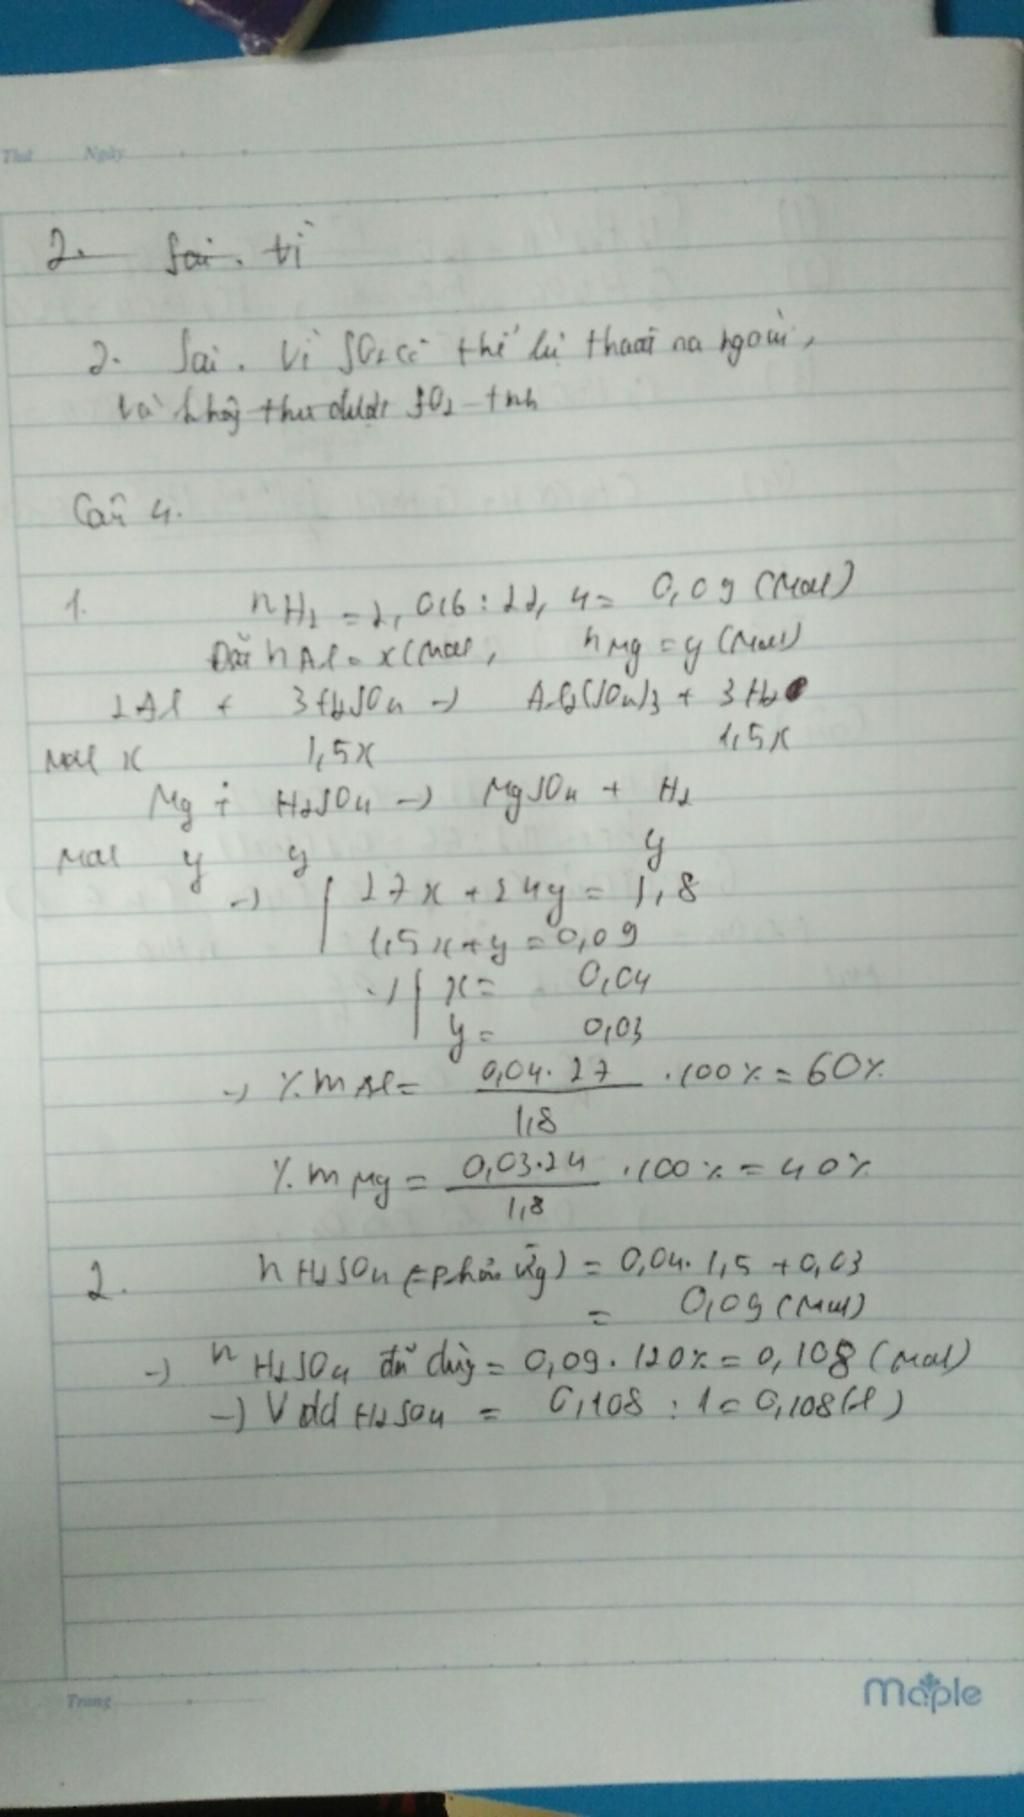 Thứ Ngày
2. Sai. Vì
2. Sai. Vì SO2 có thể bị thoát ra ngoài,
và không thu được SO2
Câu 4.
1. nH2 = 2,016 : 22,4 = 0,09 (mol)
Đặt nAl = x (mol, nMg = y (mol)
2Al + 3H2SO4 -> Al2(SO4)3 + 3H2
mol x 1,5x 1,5x
Mg + H2SO4 -> MgSO4 + H2
mol y y y
-> 27x + 24y = 1,8
1,5x + y = 0,09
-> x = 0,04
y = 0,03
-> %mAl = 0,04.27 / 1,8 .100% = 60%
%mMg = 0,03.24 / 1,8 .100% = 40%
2. nH2SO4 (phản ứng) = 0,04.1,5 + 0,03
= 0,09 (mol)
-> nH2SO4 đã dùng = 0,09.120% = 0,108 (mol)
-> Vdd H2SO4 = 0,108 : 1 = 0,108 (l)
Trang
Maple